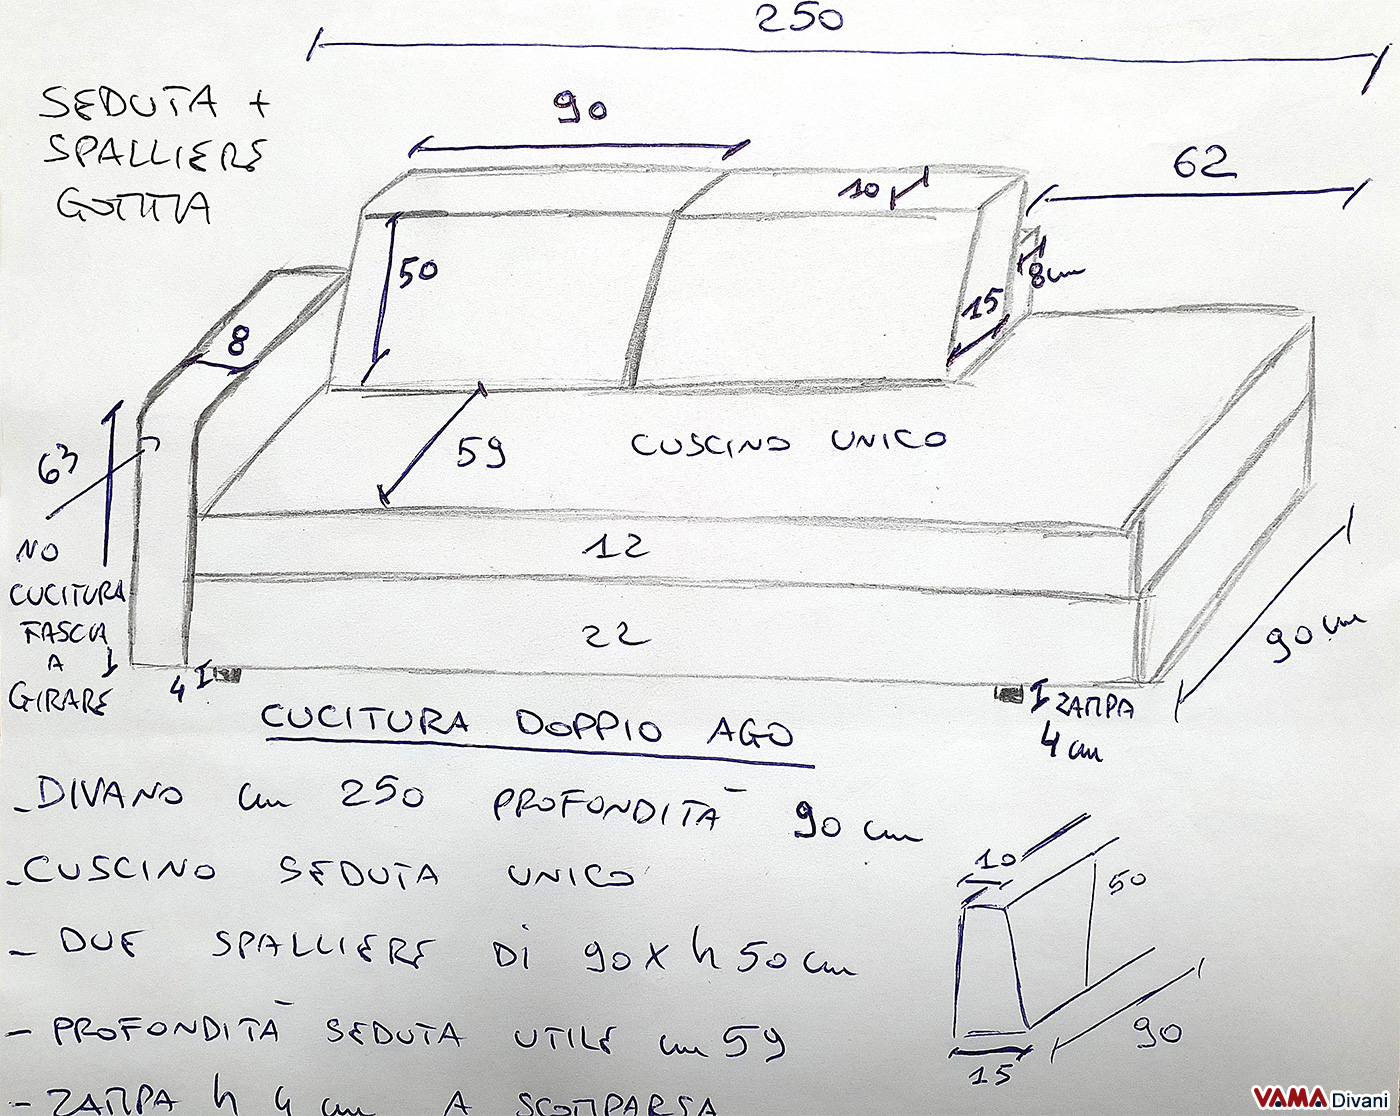 250
SEDUTA +
SPALLIERE
GOMMA
90
62
10
50
8 cm
15
8
63
59
CUSCINO UNICO
NO
CUCITURA
FASCIA
A
GIRARE
12
22
90 cm
4
ZAMPA
4 cm
CUCITURA DOPPIO AGO
- DIVANO cm 250 PROFONDITÀ 90 cm
- CUSCINO SEDUTA UNICO
- DUE SPALLIERE DI 90 X h 50 cm
- PROFONDITÀ SEDUTA UTILE cm 59
- ZAMPA h 4 cm A SCOMPARSA
10
50
90
15
VAMA Divani